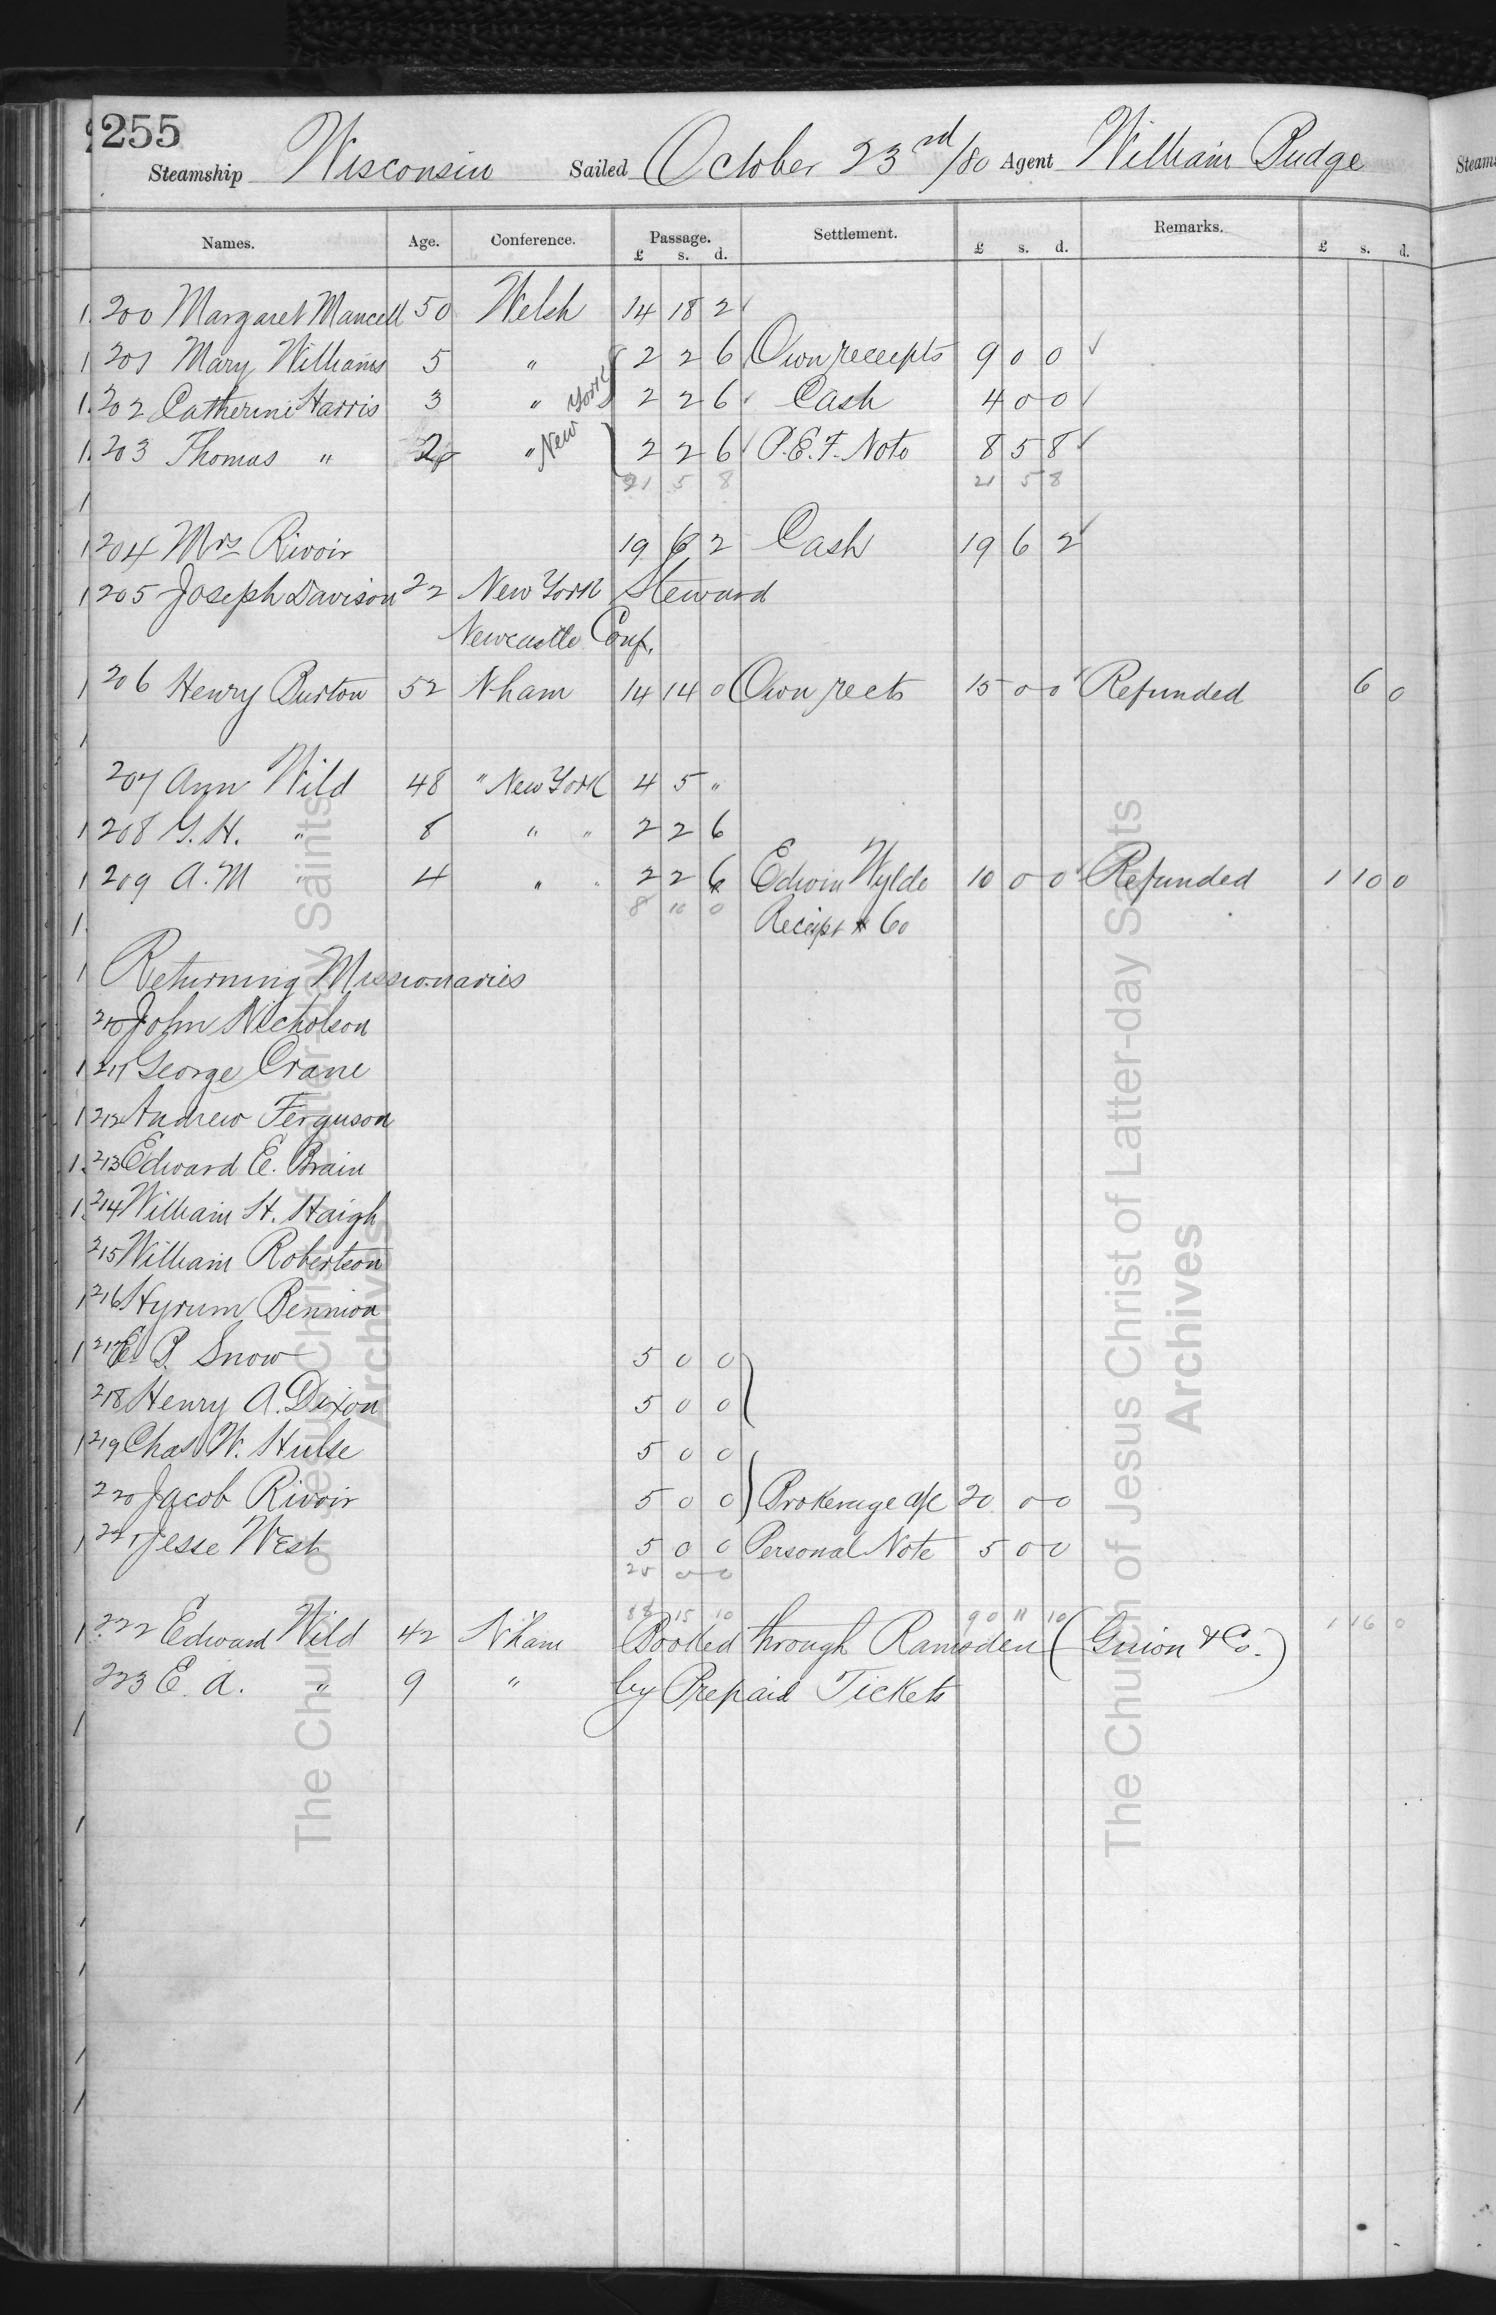 255
Steamship Wisconsin Sailed October 23rd/80 Agent William Budge
Names. Age. Conference. Passage. £ s. d. Settlement. £ s. d. Remarks. £ s. d.
200 Margaret Mancell 50 Welsh 14 18 2 ✓
201 Mary Williams 5 " 2 2 6 Own receepts 9 0 0 ✓
202 Catherine Harris 3 " New York 2 2 6 ✓ Cash 4 0 0 ✓
203 Thomas " 2 " 2 2 6 ✓ P.E.F. Note 8 5 8 ✓
21 5 8 21 5 8
204 Mrs Rivoir 19 6 2 Cash 19 6 2 ✓
205 Joseph Davison 22 New York Steward
Newcastle Conf.
206 Henry Burton 52 Nham 14 14 0 Own rects 15 0 0 ✓ Refunded 6 0
207 Ann Wild 48 " New York 4 5 "
208 G. H. " 8 " " 2 2 6
209 A. M " 4 " " 2 2 6 Edwin Wylde 10 0 0 ✓ Refunded 1 10 0
8 10 0 Receipt # 60
Returning Missionaries
210 John Nicholson
211 George Crane
212 Andrew Ferguson
213 Edward E. Brain
214 William H. Haigh
215 William Robertson
216 Hyrum Bennion
217 E. P. Snow 5 0 0
218 Henry A. Dixon 5 0 0
219 Chas W. Hulse 5 0 0
220 Jacob Rivoir 5 0 0 Brokerage a/c 20 0 0
221 Jesse West 5 0 0 Personal Note 5 0 0
25 0 0
88 15 10 90 11 10 1 16 0
222 Edward Wild 42 N'ham Booked through Ramsden (Guion & Co.)
223 E. A. " 9 " by Prepaid Tickets
The Church of Jesus Christ of Latter-day Saints
Archives
The Church of Jesus Christ of Latter-day Saints
Archives